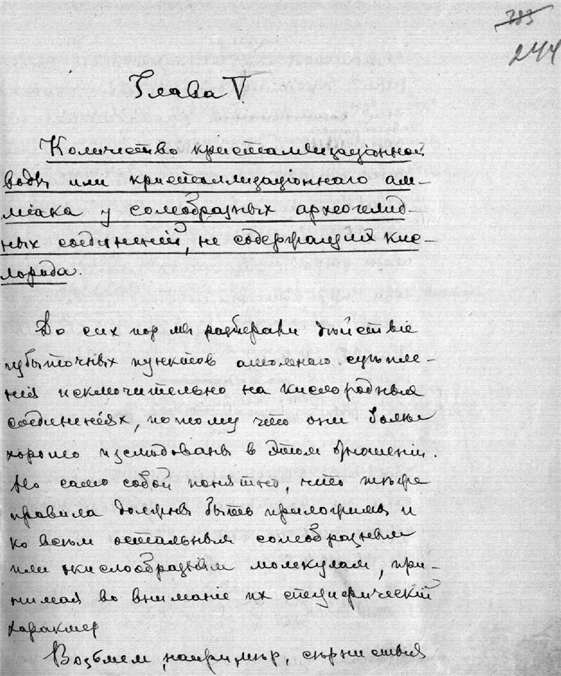 783
244
Глава V
Количество кристаллизаціонной
воды или кристаллизаціоннаго ам-
міака у солеобразных археогелид-
ных соединеній, не содержащих кис-
лорода.
До сих пор мы разбирали дѣйствіе
избыточных пунктов атомнаго сцѣпле-
нія исключительно на кислородныя
соединенія, потому что они болѣе
хорошо изслѣдованы в этом отношеніи.
Но само собой понятно, что тѣ же
правила должны быть приложимы и
ко всѣм остальным солеобразным
или кислообразным молекулам, при-
нимая во вниманіе их специфическій
характер
Возьмем, напримѣр, сѣрнистыя